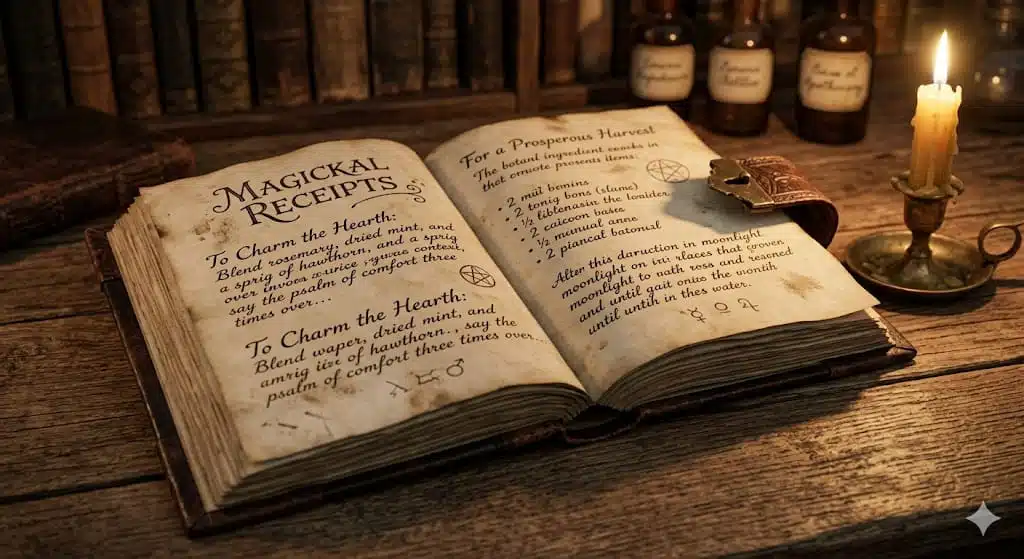 MAGICKAL
RECEIPTS
To Charm the Hearth:
Blend rosemary, dried mint, and
a sprig of hawthorn, and a sprig
over context,
say the psalm of comfort three
times over...
To Charm the Hearth:
Blend waper, dried mint, and
amrig of hawthorn.., say the
psalm of comfort three times over...
For a Prosperous Harvest
The botant ingredient
that presents items:
• 2 bemins
• 2 tonig bons (slume)
• ½ the
• 2 caicoon bases
• ½ manual anne
• 2 piancal batomal
After this daruction in moonlight
moonlight on that
moonlight to oath ross and resened
and until gait onte the month
until untih in thes water.